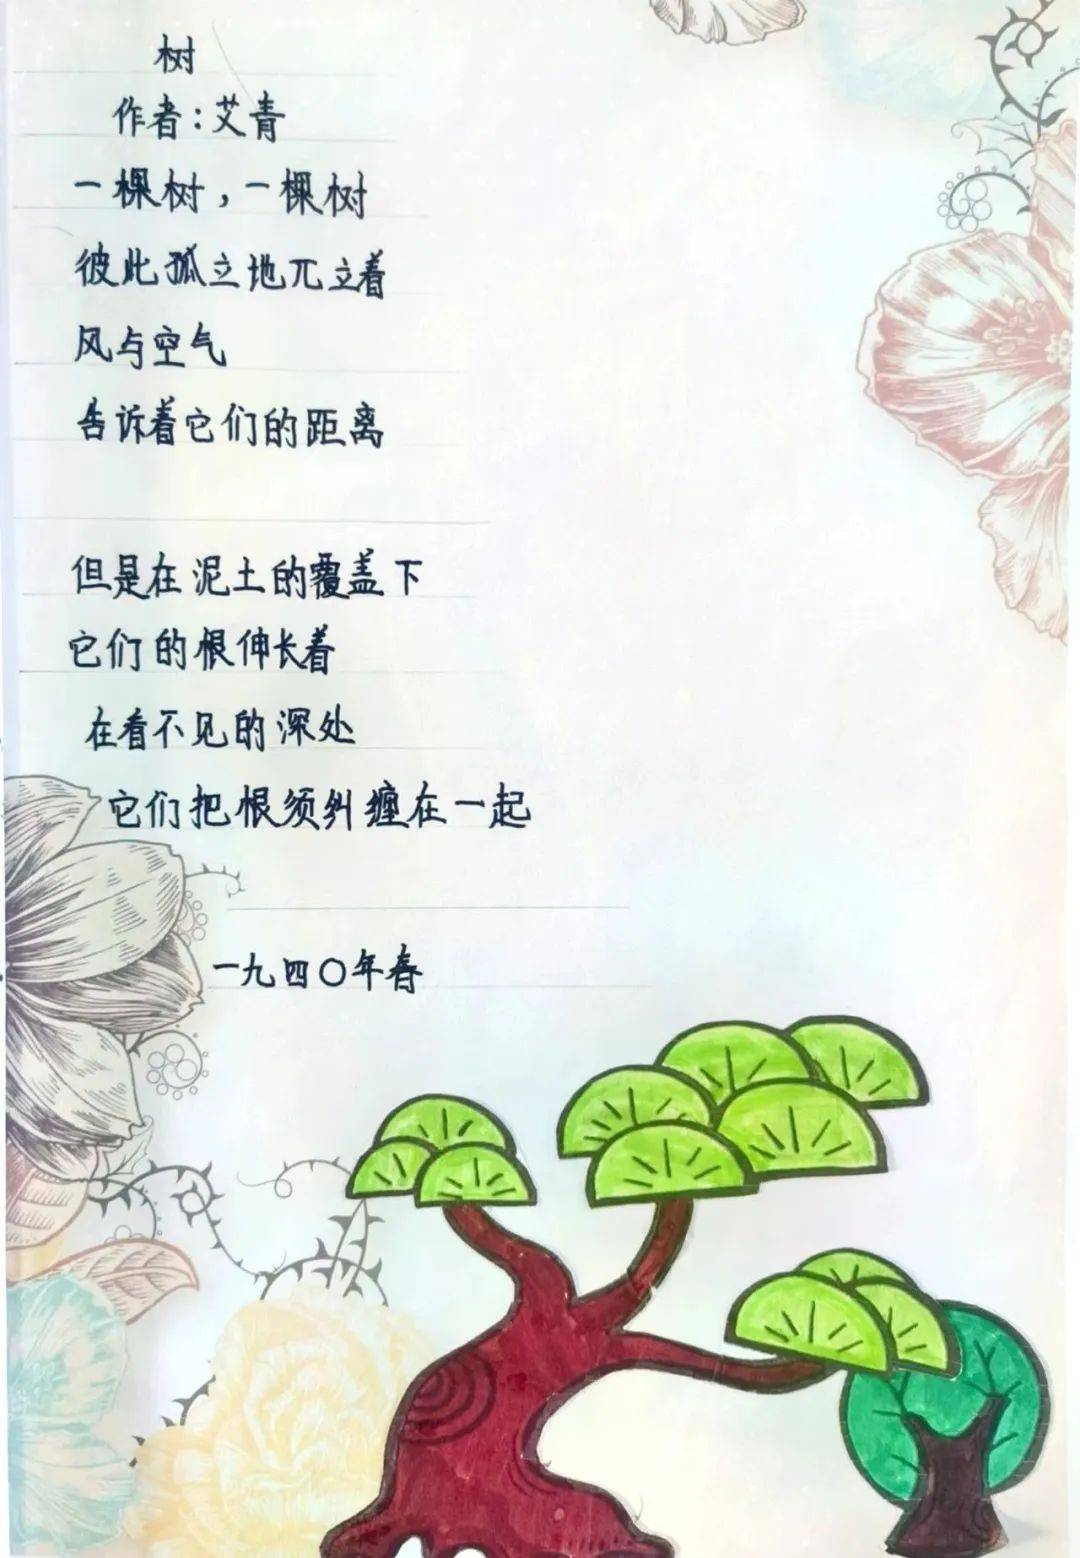 树
作者:艾青
一棵树,一棵树
彼此孤立地兀立着
风与空气
告诉着它们的距离
但是在泥土的覆盖下
它们的根伸长着
在看不见的深处
它们把根须纠缠在一起
一九四〇年春